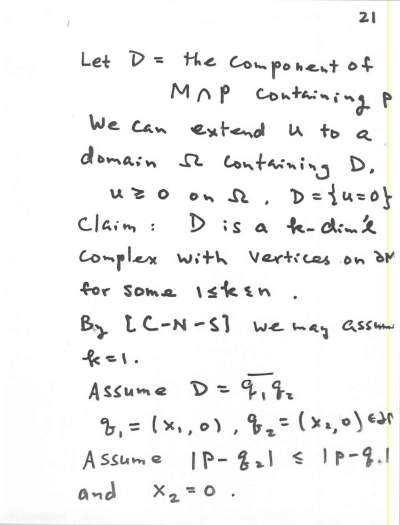 21
Let D = the component of
M ∩ P containing p
We can extend u to a
domain Ω containing D,
u ≥ 0 on Ω, D = {u=0}
Claim : D is a k-dim'l
complex with vertices on ∂M
for some 1≤k≤n .
By [C-N-S] we may assum
k = 1.
Assume D = \overline{q₁q₂}
q₁ = (x₁, 0) , q₂ = (x₂, 0) ∈
Assume |P - q₂| ≤ |P - q₁|
and x₂ = 0 .